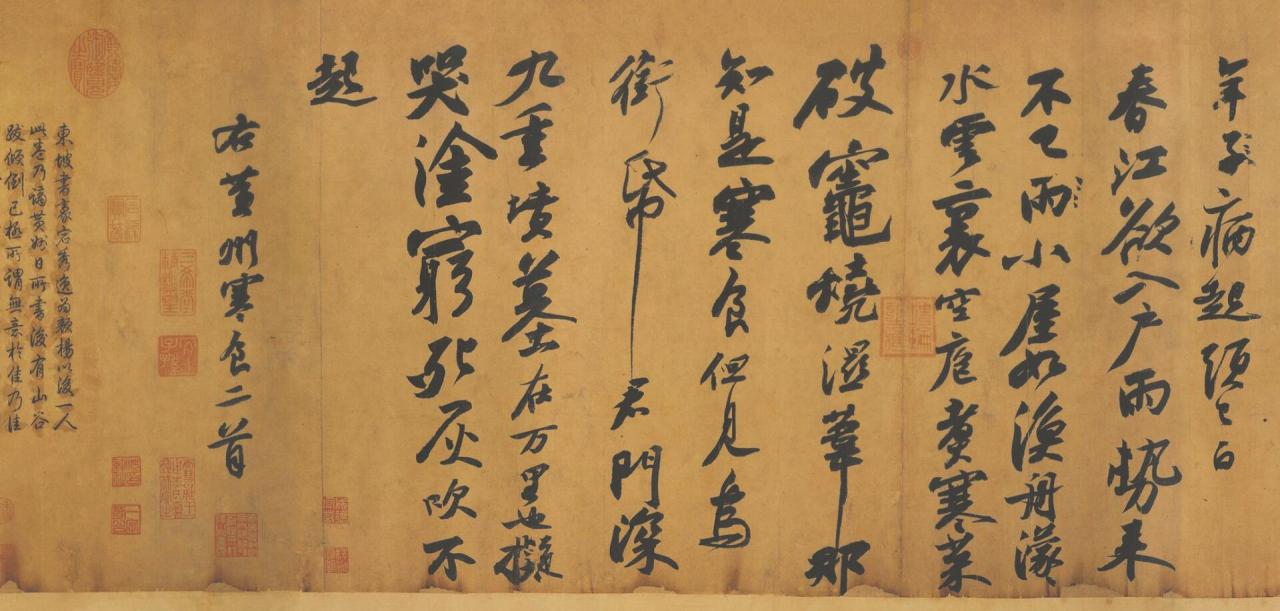 年子病起須已白
春江欲入戶雨勢來
不已雨小屋如漁舟濛〻
水雲裏空庖煑寒菜
破竈燒濕葦那
知是寒食但見烏
銜帋君門深
九重墳墓在万里也擬
哭塗窮死灰吹不
起
右黃州寒食二首
東坡書豪宕秀逸為顏楊以後一人
此卷乃謫黃州日所書後有山谷
跋傾倒已極所謂無意於佳乃佳